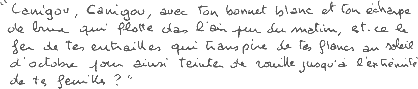 "Canigou, Canigou, avec ton bonnet blanc et ton écharpe
de brume qui flotte dans l'air pur du matin, est-ce le
fer de tes entrailles qui transpire de tes flancs au soleil
d'octobre pour ainsi teinter de rouille jusqu'à l'extrémité
de ta feuilles ? "